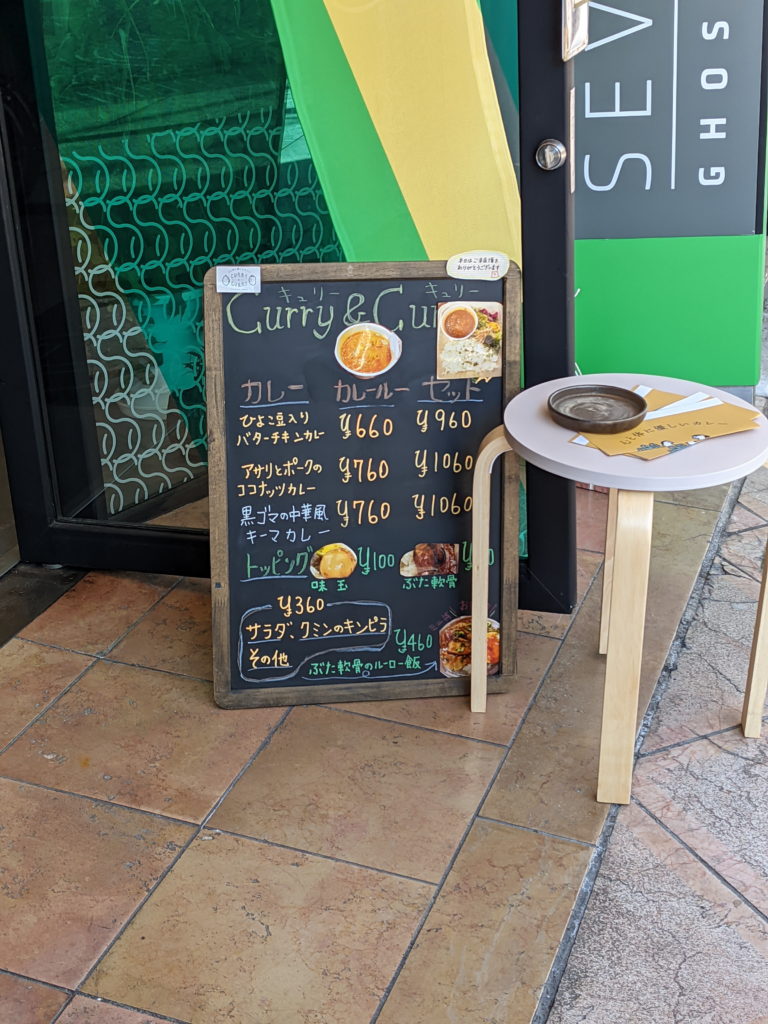 SEV
GHOS
本日はご来店頂き
ありがとうございます
CURRY
CURRY
キュリー キュリー
Curry & Cu
カレー カレールー セット
ひよこ豆入り
バターチキンカレー ¥660 ¥960
アサリとポークの
ココナッツカレー ¥760 ¥1060
黒ゴマの中華風
キーマカレー ¥760 ¥1060
トッピング ¥100
味玉 ぶた軟骨
¥360
サラダ、クミンのキンピラ
その他
¥460
ぶた軟骨のルーロー飯
体に優しいカレー